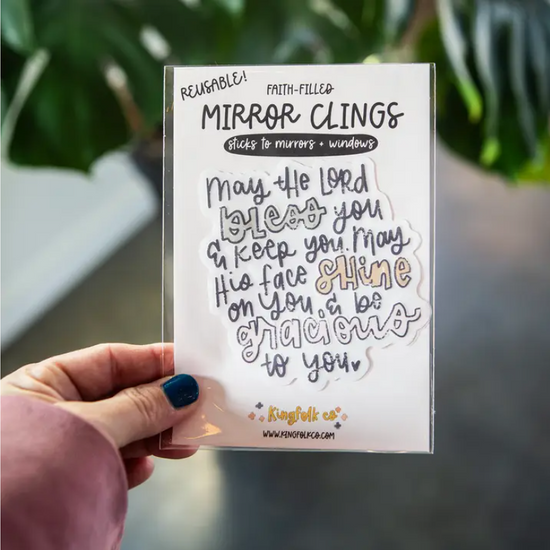 REUSABLE!
FAITH-FILLED
MIRROR CLINGS
sticks to mirrors + windows
May the LORD
bless you
& keep you. May
His face shine
on you & be
gracious
to you
Kingfolk co
WWW.KINGFOLKCO.COM